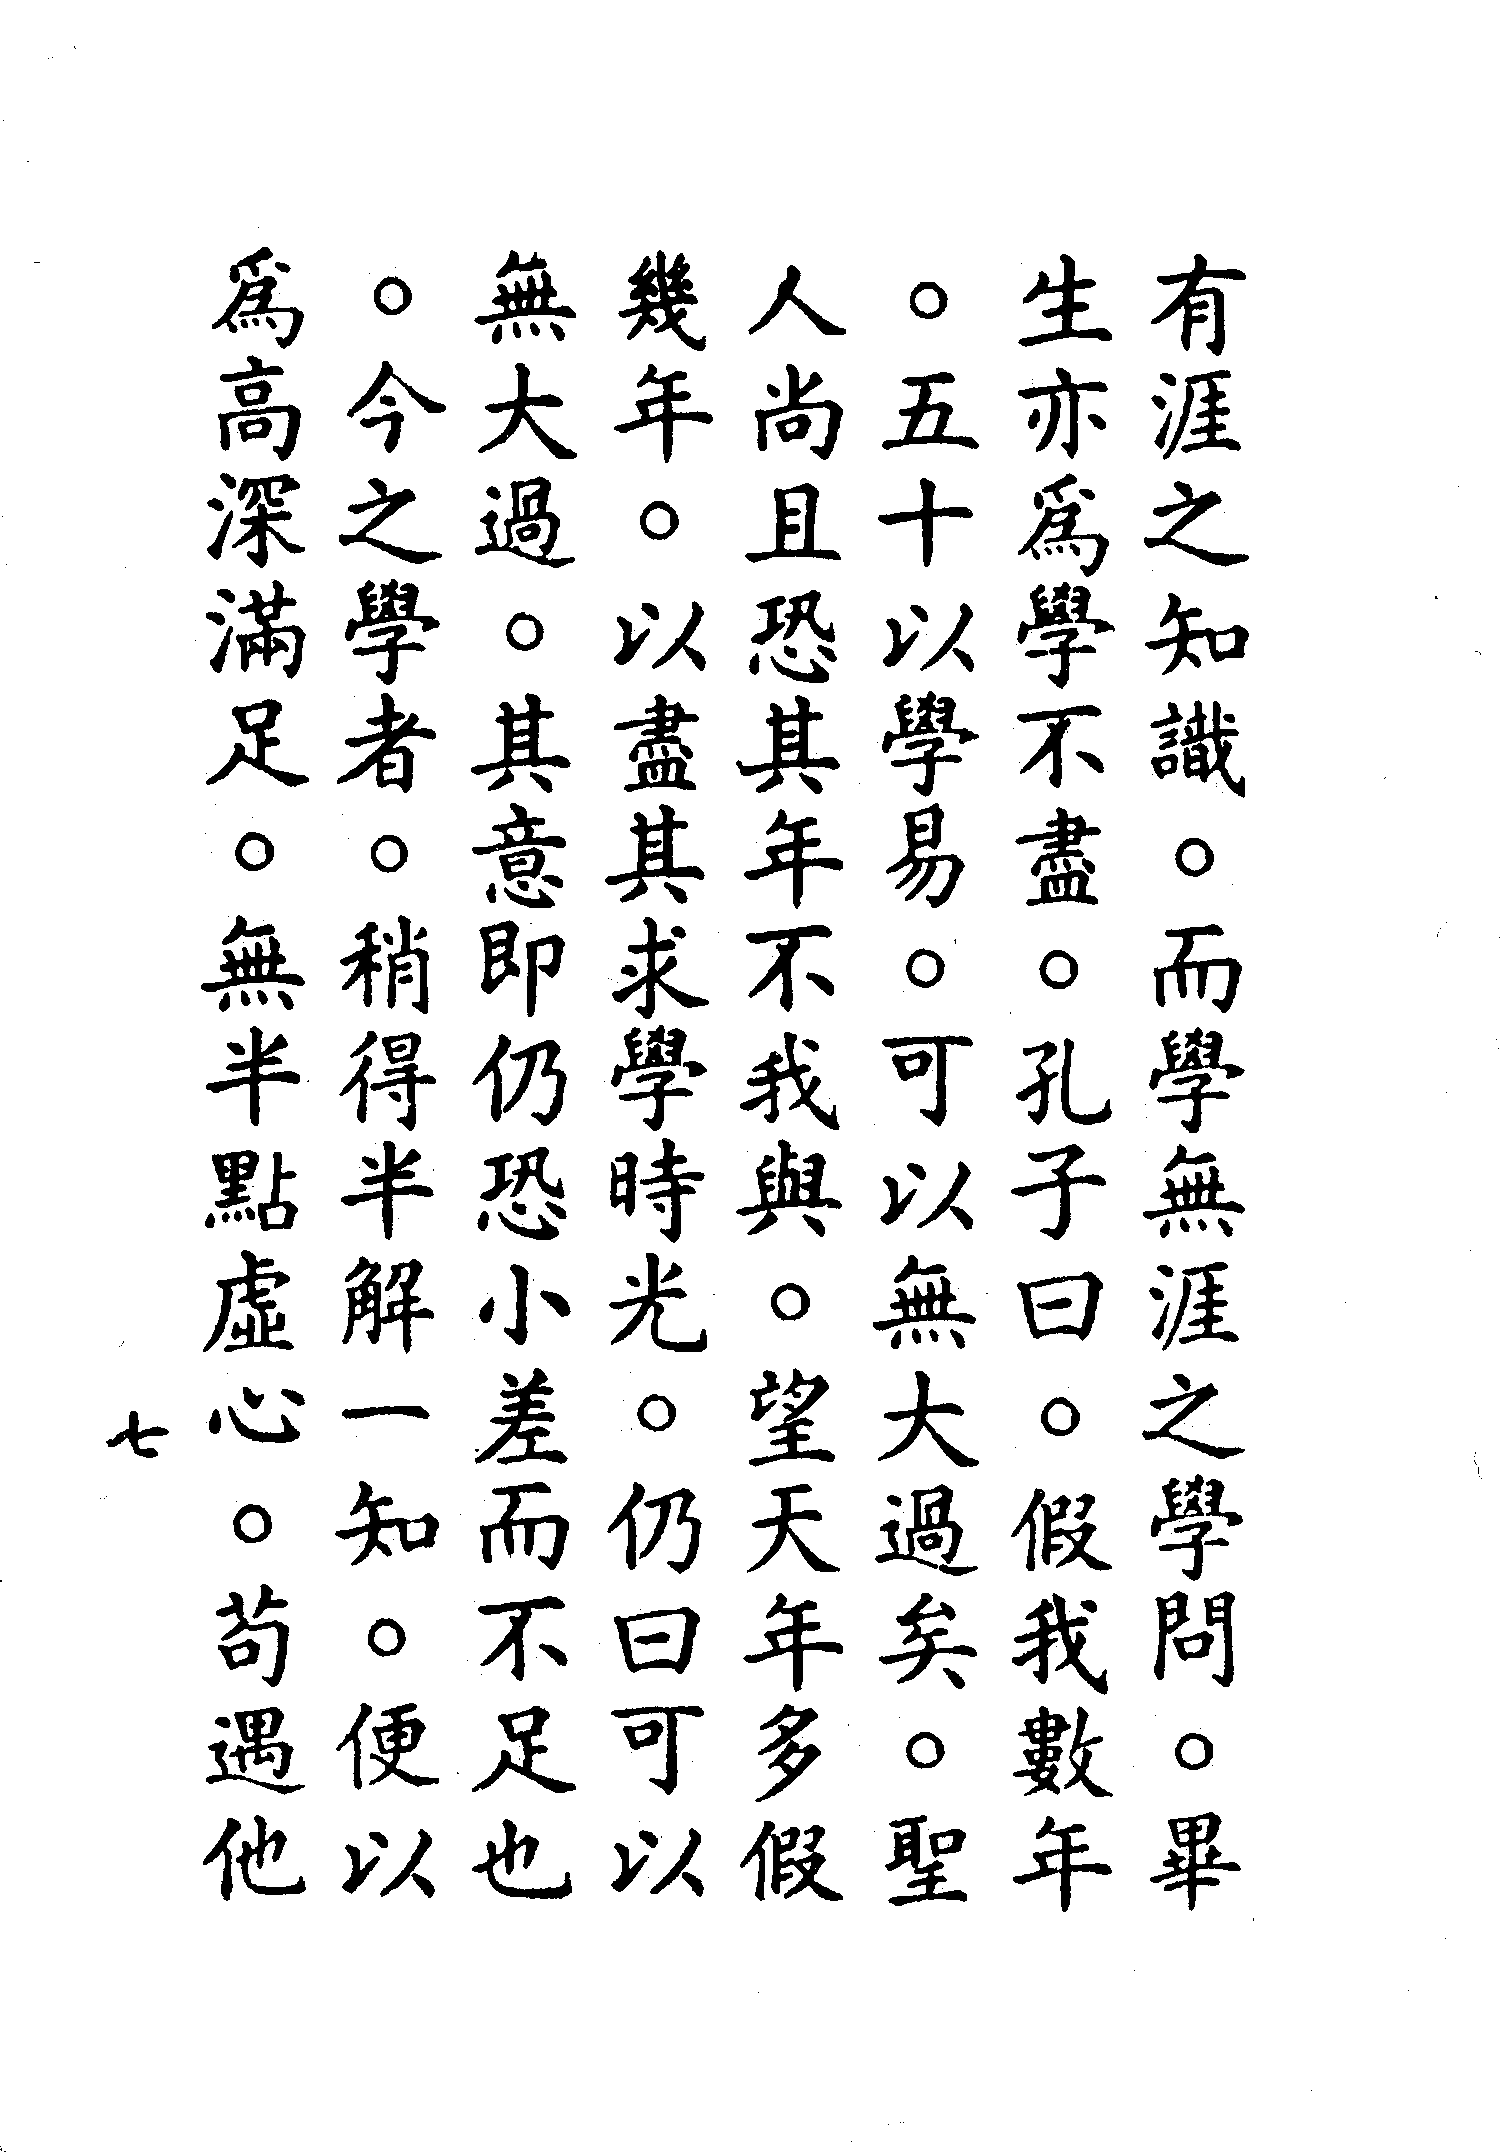 有涯之知識。而學無涯之學問。畢
生亦爲學不盡。孔子曰。假我數年
。五十以學易。可以無大過矣。聖
人尚且恐其年不我與。望天年多假
幾年。以盡其求學時光。仍曰可以
無大過。其意即仍恐小差而不足也
。今之學者。稍得半解一知。便以
爲高深滿足。無半點虛心。苟遇他
七